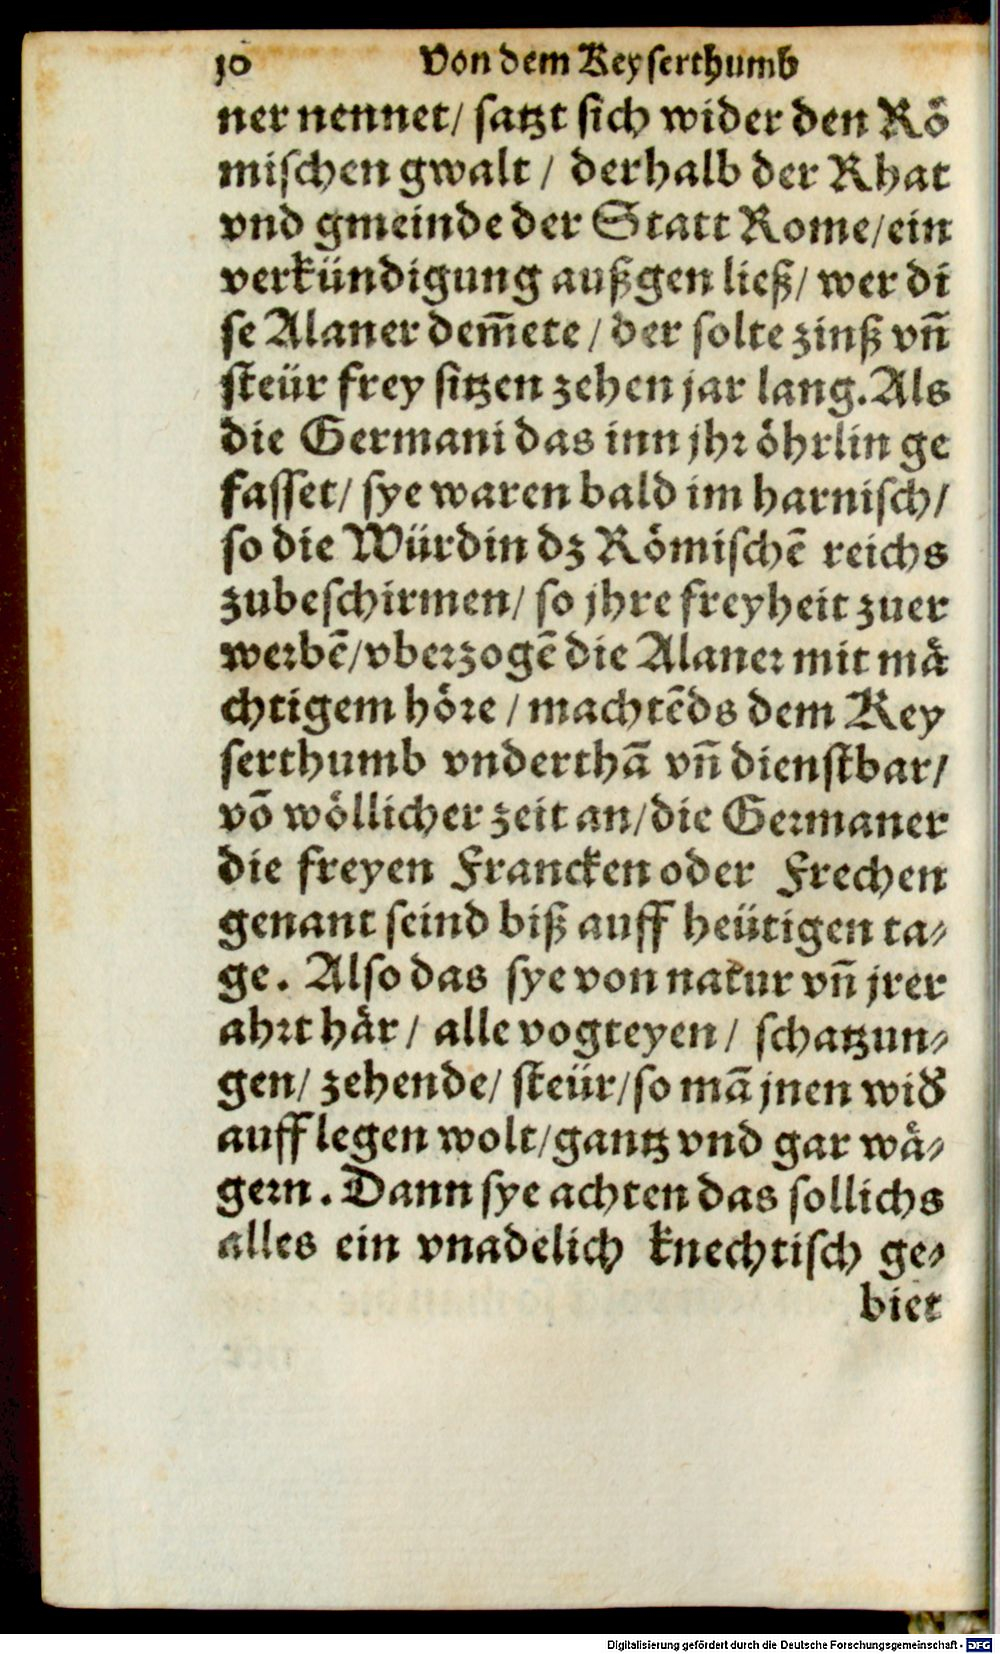 10 Von dem Keyserthumb
ner nennet/ satzt sich wider den Rö
mischen gwalt / derhalb der Rhat
vnd gmeinde der Statt Rome/ein
verkündigung außgen ließ/ wer di
se Alaner dem̄ete / der solte zinß vn̄
steür frey sitzen zehen jar lang. Als
die Germani das inn jhr öhrlin ge
fasset/ sye waren bald im harnisch/
so die Würdin dz Römischē reichs
zubeschirmen/ so jhre freyheit zuer
werbē/vberzogē die Alaner mit mä
chtigem höre / machtēds dem Key
serthumb vnderthā vn̄ dienstbar/
vō wöllicher zeit an/die Germaner
die freyen Francken oder Frechen
genant seind biß auff heütigen ta-
ge. Also das sye von natur vn̄ jrer
ahrt här / alle vogteyen / schatzun-
gen/ zehende/ steür/so mā jnen wid
auff legen wolt/gantz vnd gar wä-
gern. Dann sye achten das sollichs
alles ein vnadelich knechtisch ge-
biet
Digitalisierung gefördert durch die Deutsche Forschungsgemeinschaft - DFG